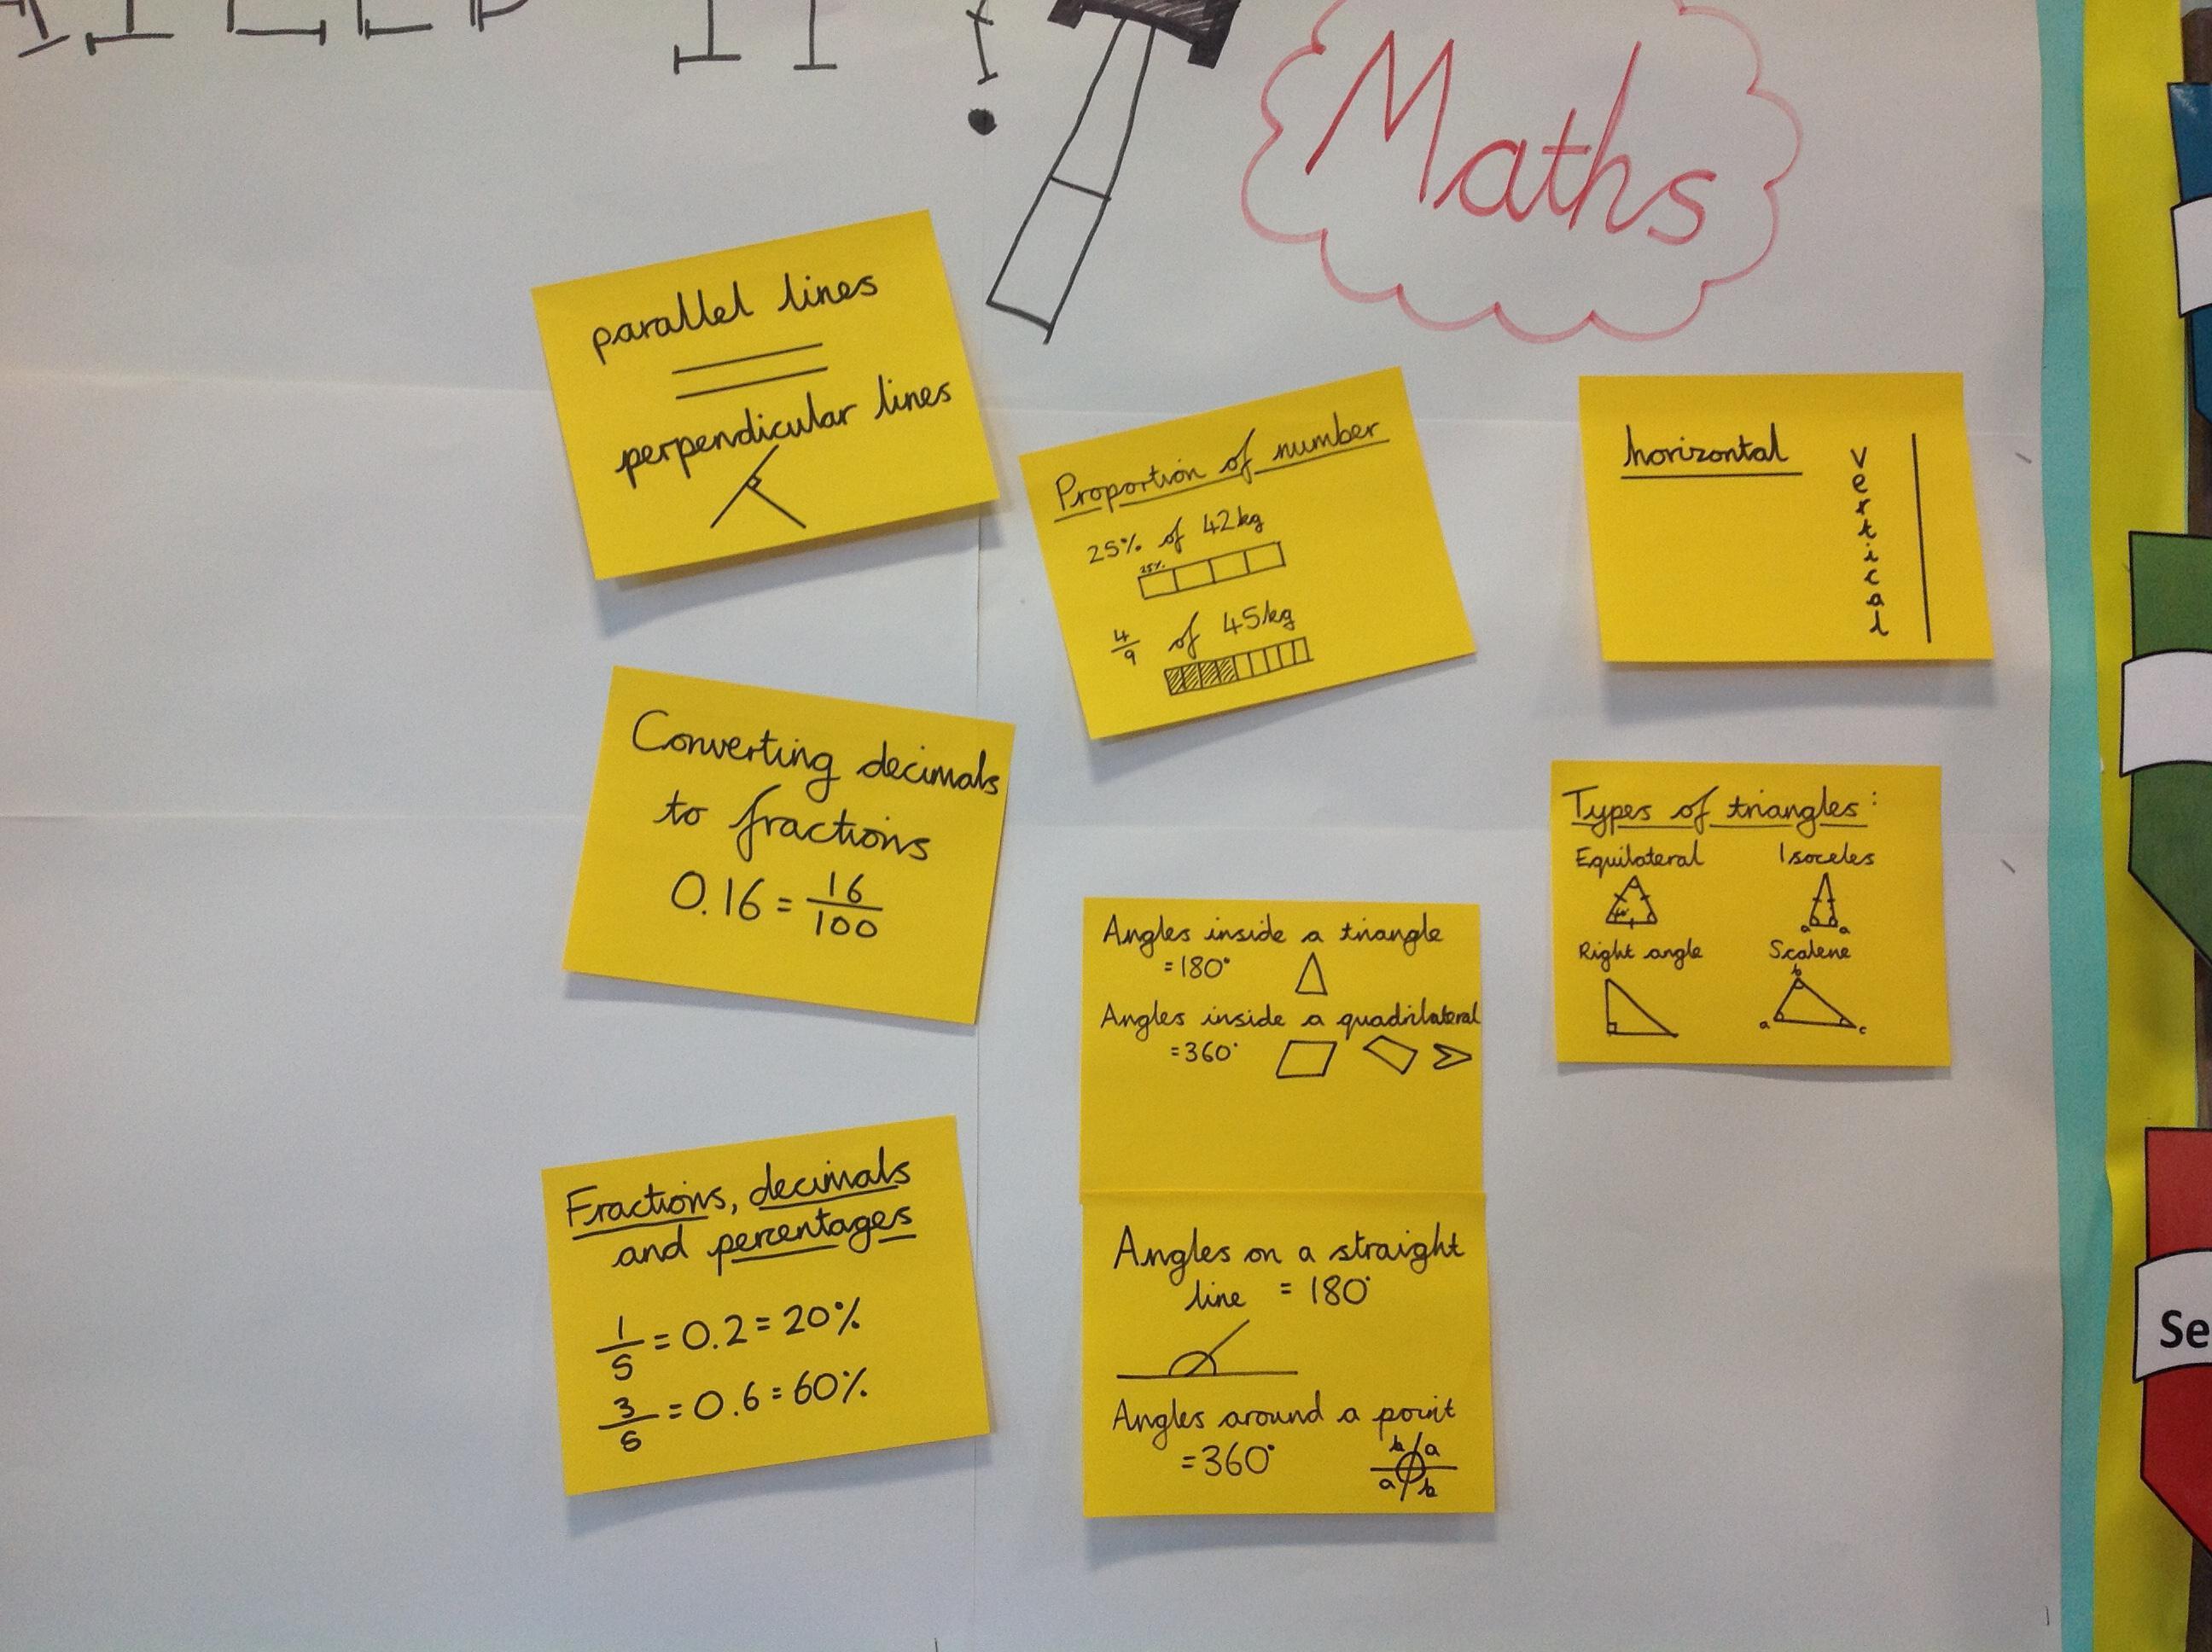 Maths
parallel lines
perpendicular lines
Proportion of number
25% of 42kg
25%
4/9 of 45kg
horizontal
vertical
Converting decimals
to fractions
0.16 = 16/100
Types of triangles:
Equilateral Isoceles
a a
Right angle Scalene
b
a c
Angles inside a triangle
=180°
Angles inside a quadrilateral
=360°
Fractions, decimals
and percentages
1/5 = 0.2 = 20%
3/5 = 0.6 = 60%
Angles on a straight
line = 180°
Angles around a point
=360°
b a
a b
Se